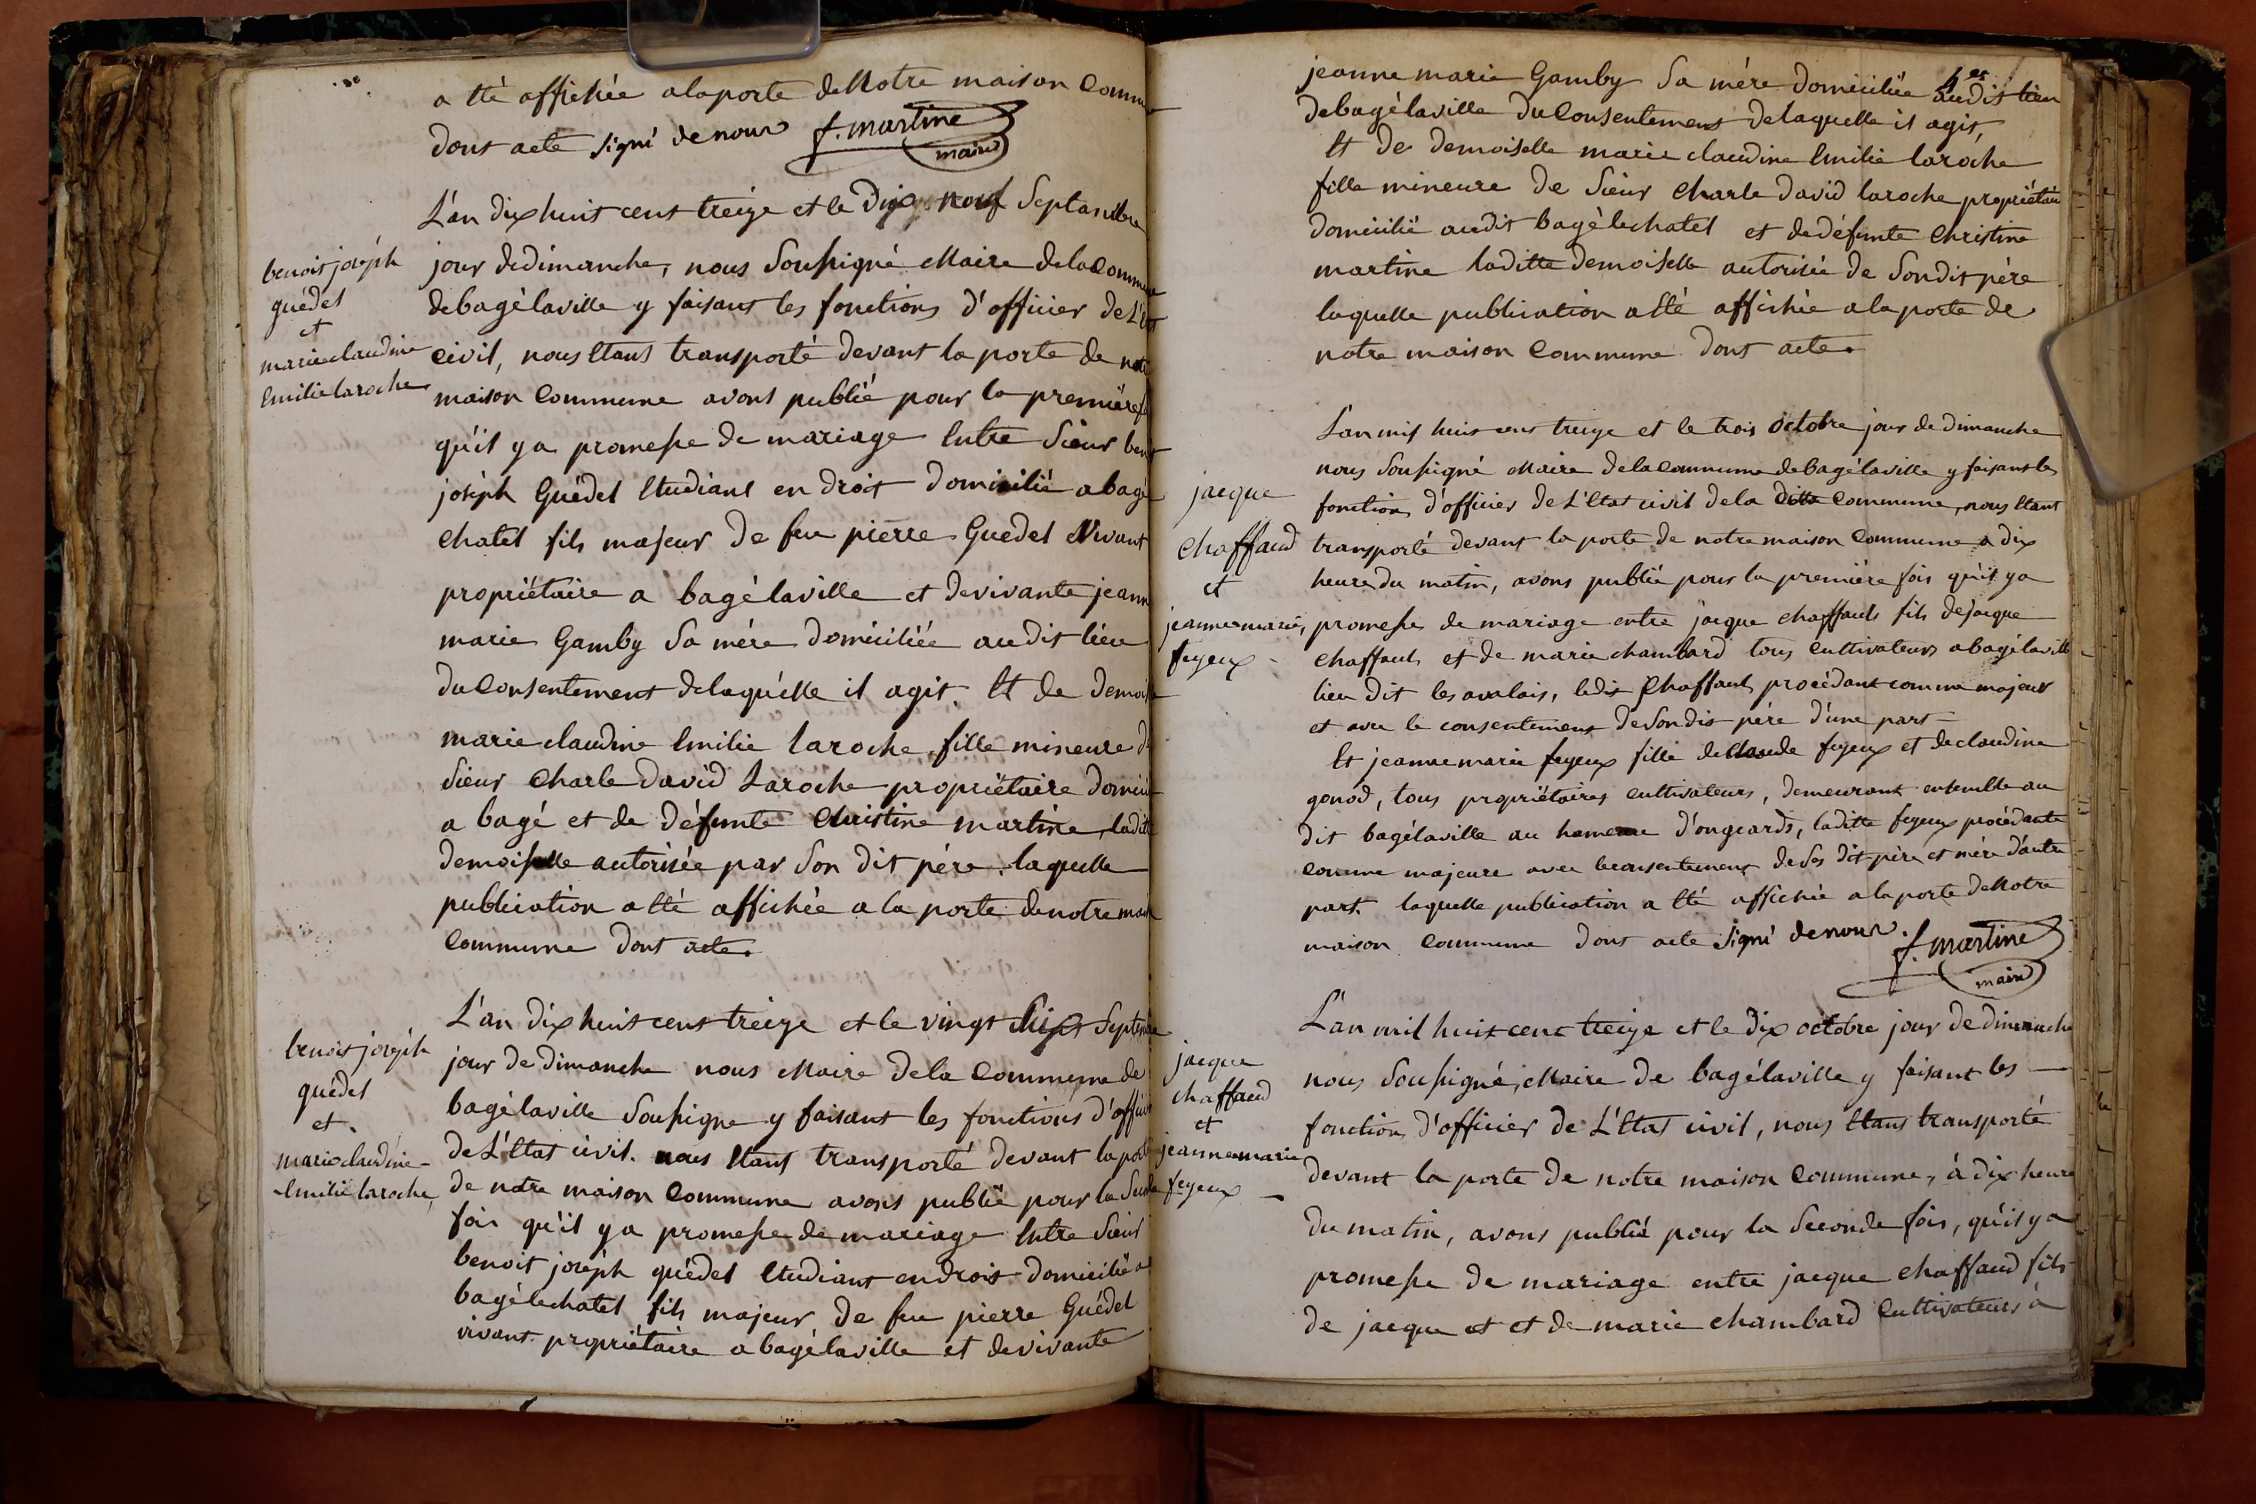 a été affichée a la porte de Notre maison Comm
dont acte signé de nous f. martine
maire
L'an dix huit cent treize et le Dix neuf Septambre
benoit joséph
guédet
et
marie claudine
Emilie laroche
jour de dimanche, nous Soussigné Maire de la Commune
de bagélaville y faisant les fonctions d'officier de L'ét
civil, nous Etant transporté devant la porte de not
maison Commune avons publié pour la premiére f
qu'il y a promesse de mariage Entre Sieur ben
joséph Guédet Etudiant en droit Domicilié a bagé
chatel fils majeur De feu pierre Guedet Vivant
propriétaire a bagélaville et de vivante jeann
marie Gamby Sa mére domiciliée au dit lieu
du Consentement de laquélle il agit. Et de Demois
marie claudine Emilie laroche fille mineure d
Sieur Charle David Laroche propriétaire domici
a bagé et de Défunte Christine martine, ladit
demoiselle autorisée par Son dit pére. laquelle
publication a été affichée a la porte de notre mais
Commune dont acte.
benoit joséph
guédet
et.
marie claudine
Emilie laroche,
L'an Dix huit cent treize et le vingt Six Septembre
jour de Dimanche nous Maire de la Commune de
bagélaville Soussigne y faisant les fonctions d'offici
de L'Etat civil. nous Etant transporté devant la port
de notre maison Commune avons publié pour la Sude
fois qu'il y a promesse de mariage Entre Sieur
benoit joséph guédet Etudiant en droit domicilié a
bagélechatel fils majeur De feu pierre Guédet
vivant propriétaire a bagélaville et de vivante
jeanne marie Gamby Sa mére Domiciliée au dit lieu
de bagélaville Du Consentement de laquelle il agit,
Et De Demoiselle marie claudine Emilie laroche
fille mineure De Sieur Charle David laroche propriétair
domicilié audit bagélechatel et de défunte Christine
martine laditte Demoiselle autorisée de Son dit pére
laquelle publication a été affichée a la porte de
notre maison Commune Dont acte.
jacque
Chaffaud
et
jeanne marie,
feyeux
L'an mil huit cent treize et le trois Octobre jour de dimanche
nous Soussigné Maire de la Commune de bagélaville y faisant les
fonction d'officier de L'Etat civil de la ditte Commune, nous Etant
transporté devant la porte de notre maison Commune a dix
heure du matin, avons publié pour la premiére fois qu'il y a
promesse de mariage entre jacque chaffaud fils de jacque
chaffaud et de marie chambard tous Cultivateurs a bagélaville
lieu dit les avalais, ledit Chaffaud procédant comme majeur
et avec le consentement de Son dit pére d'une part
Et jeanne marie feyeux fille de Claude feyeux et de claudine
gonod, tous propriétaires cultivateurs, demeurant ensemble au
dit bagélaville au hameau d'ongeards, laditte feyeux procédante
comme majeure avec le consentement de Ses dit pére et mére d'autre
part. laquelle publication a été affichée a la porte de Notre
maison Commune dont acte signé de nous. f. martine
maire
jacque
chaffaud
et
jeanne marie
feyeux
L'an mil huit cent treize et le dix octobre jour de dimanche
nous Soussigné, Maire de bagélaville y faisant les
fonction d'officier de L'Etat civil, nous Etant transporté
devant la porte de notre maison Commune, à dix heure
du matin, avons publié pour la Seconde fois, qu'il y a
promesse de mariage entre jacque chaffaud fils
de jacque et et de marie chambard Cultivateurs à